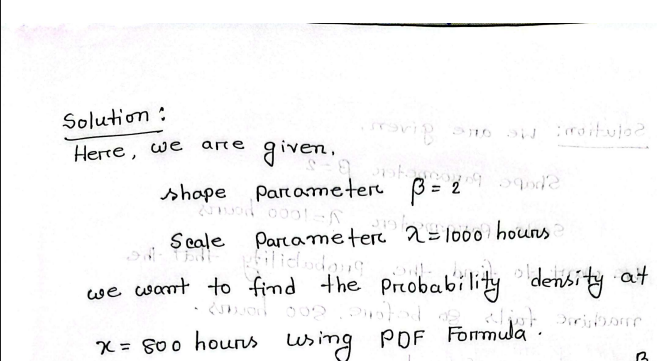 Solution :
Here, we are given,
shape parameter β = 2
Scale parameter λ = 1000 hours
we want to find the probability density at
x = 800 hours using PDF Formula.